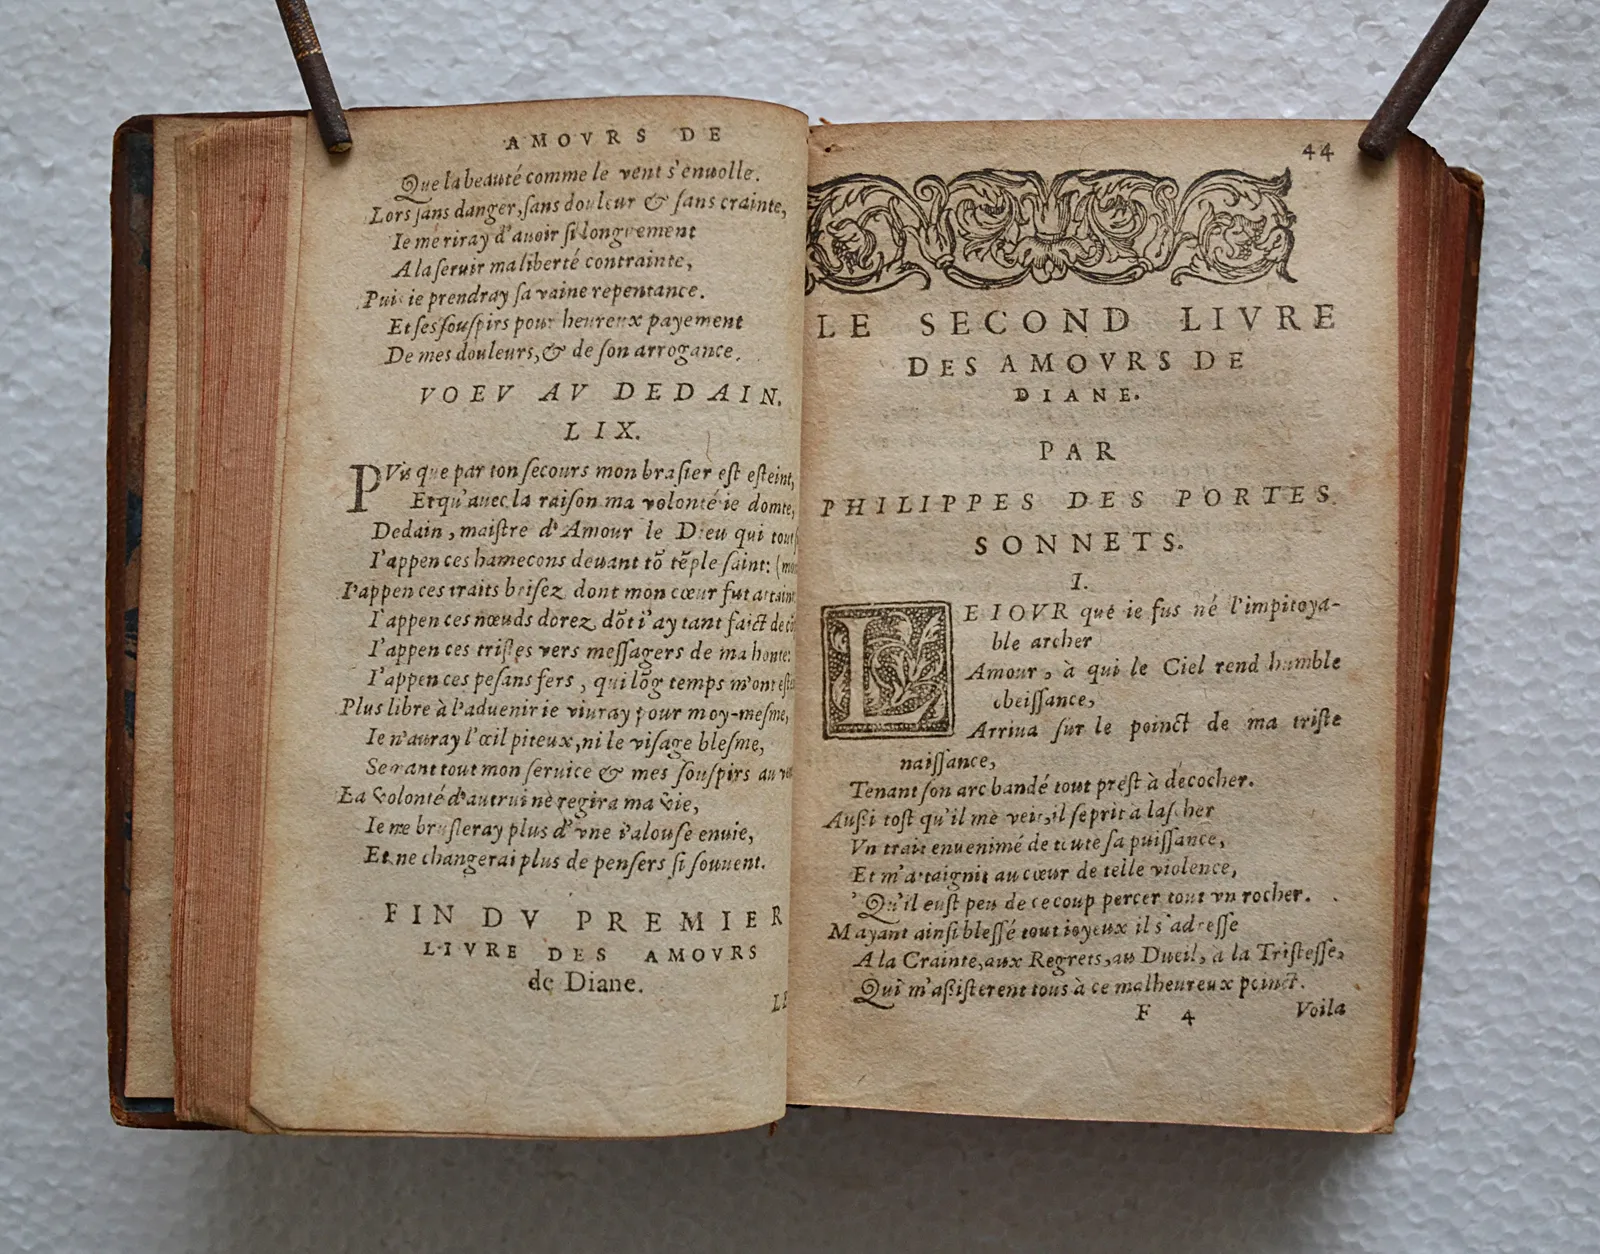 AMOVRS DE
Que la beauté comme le vent s'enuolle.
Lors sans danger, sans douleur & sans crainte,
Ie me riray d'auoir si longuement
A la seruir ma liberté contrainte,
Puis ie prendray sa vaine repentance.
Et ses souspirs pour heureux payement
De mes douleurs, & de son arrogance.
VOEV AV DEDAIN.
LIX.
PVis que par ton secours mon brasier est esteint,
Et qu'auec la raison ma volonté ie domte,
Dedain, maistre d'Amour le Dieu qui tout
I'appen ces hamecons deuant tõ tẽple saint:
I'appen ces traits brisez dont mon cœur fut attaint
I'appen ces nœuds dorez, dõt i'ay tant faict de
I'appen ces tristes vers messagers de ma honte:
I'appen ces pesans fers, qui lõg temps m'ont
Plus libre à l'aduenir ie viuray pour moy-mesme,
Ie n'auray l'œil piteux, ni le visage blesme,
Semant tout mon seruice & mes souspirs au
La volonté d'autrui ne regira ma vie,
Ie ne brusleray plus d'vne ialouse enuie,
Et ne changerai plus de pensers si souuent.
FIN DV PREMIER
LIVRE DES AMOVRS
de Diane.
LE
44
LE SECOND LIVRE
DES AMOVRS DE
DIANE.
PAR
PHILIPPES DES PORTES.
SONNETS.
I.
LE IOVR que ie fus né l'impitoya-
ble archer
Amour, à qui le Ciel rend humble
obeissance,
Arriua sur le poinct de ma triste
naissance,
Tenant son arc bandé tout prest à décocher.
Aussi tost qu'il me veit, il se prit à lascher
Vn trait enuenimé de toute sa puissance,
Et m'attaignit au cœur de telle violence,
Qu'il eust peu de ce coup percer tout vn rocher.
M'ayant ainsi blessé tout ioyeux il s'adresse
A la Crainte, aux Regrets, au Dueil, a la Tristesse,
Qui m'assisterent tous à ce malheureux poinct.
F 4 Voila